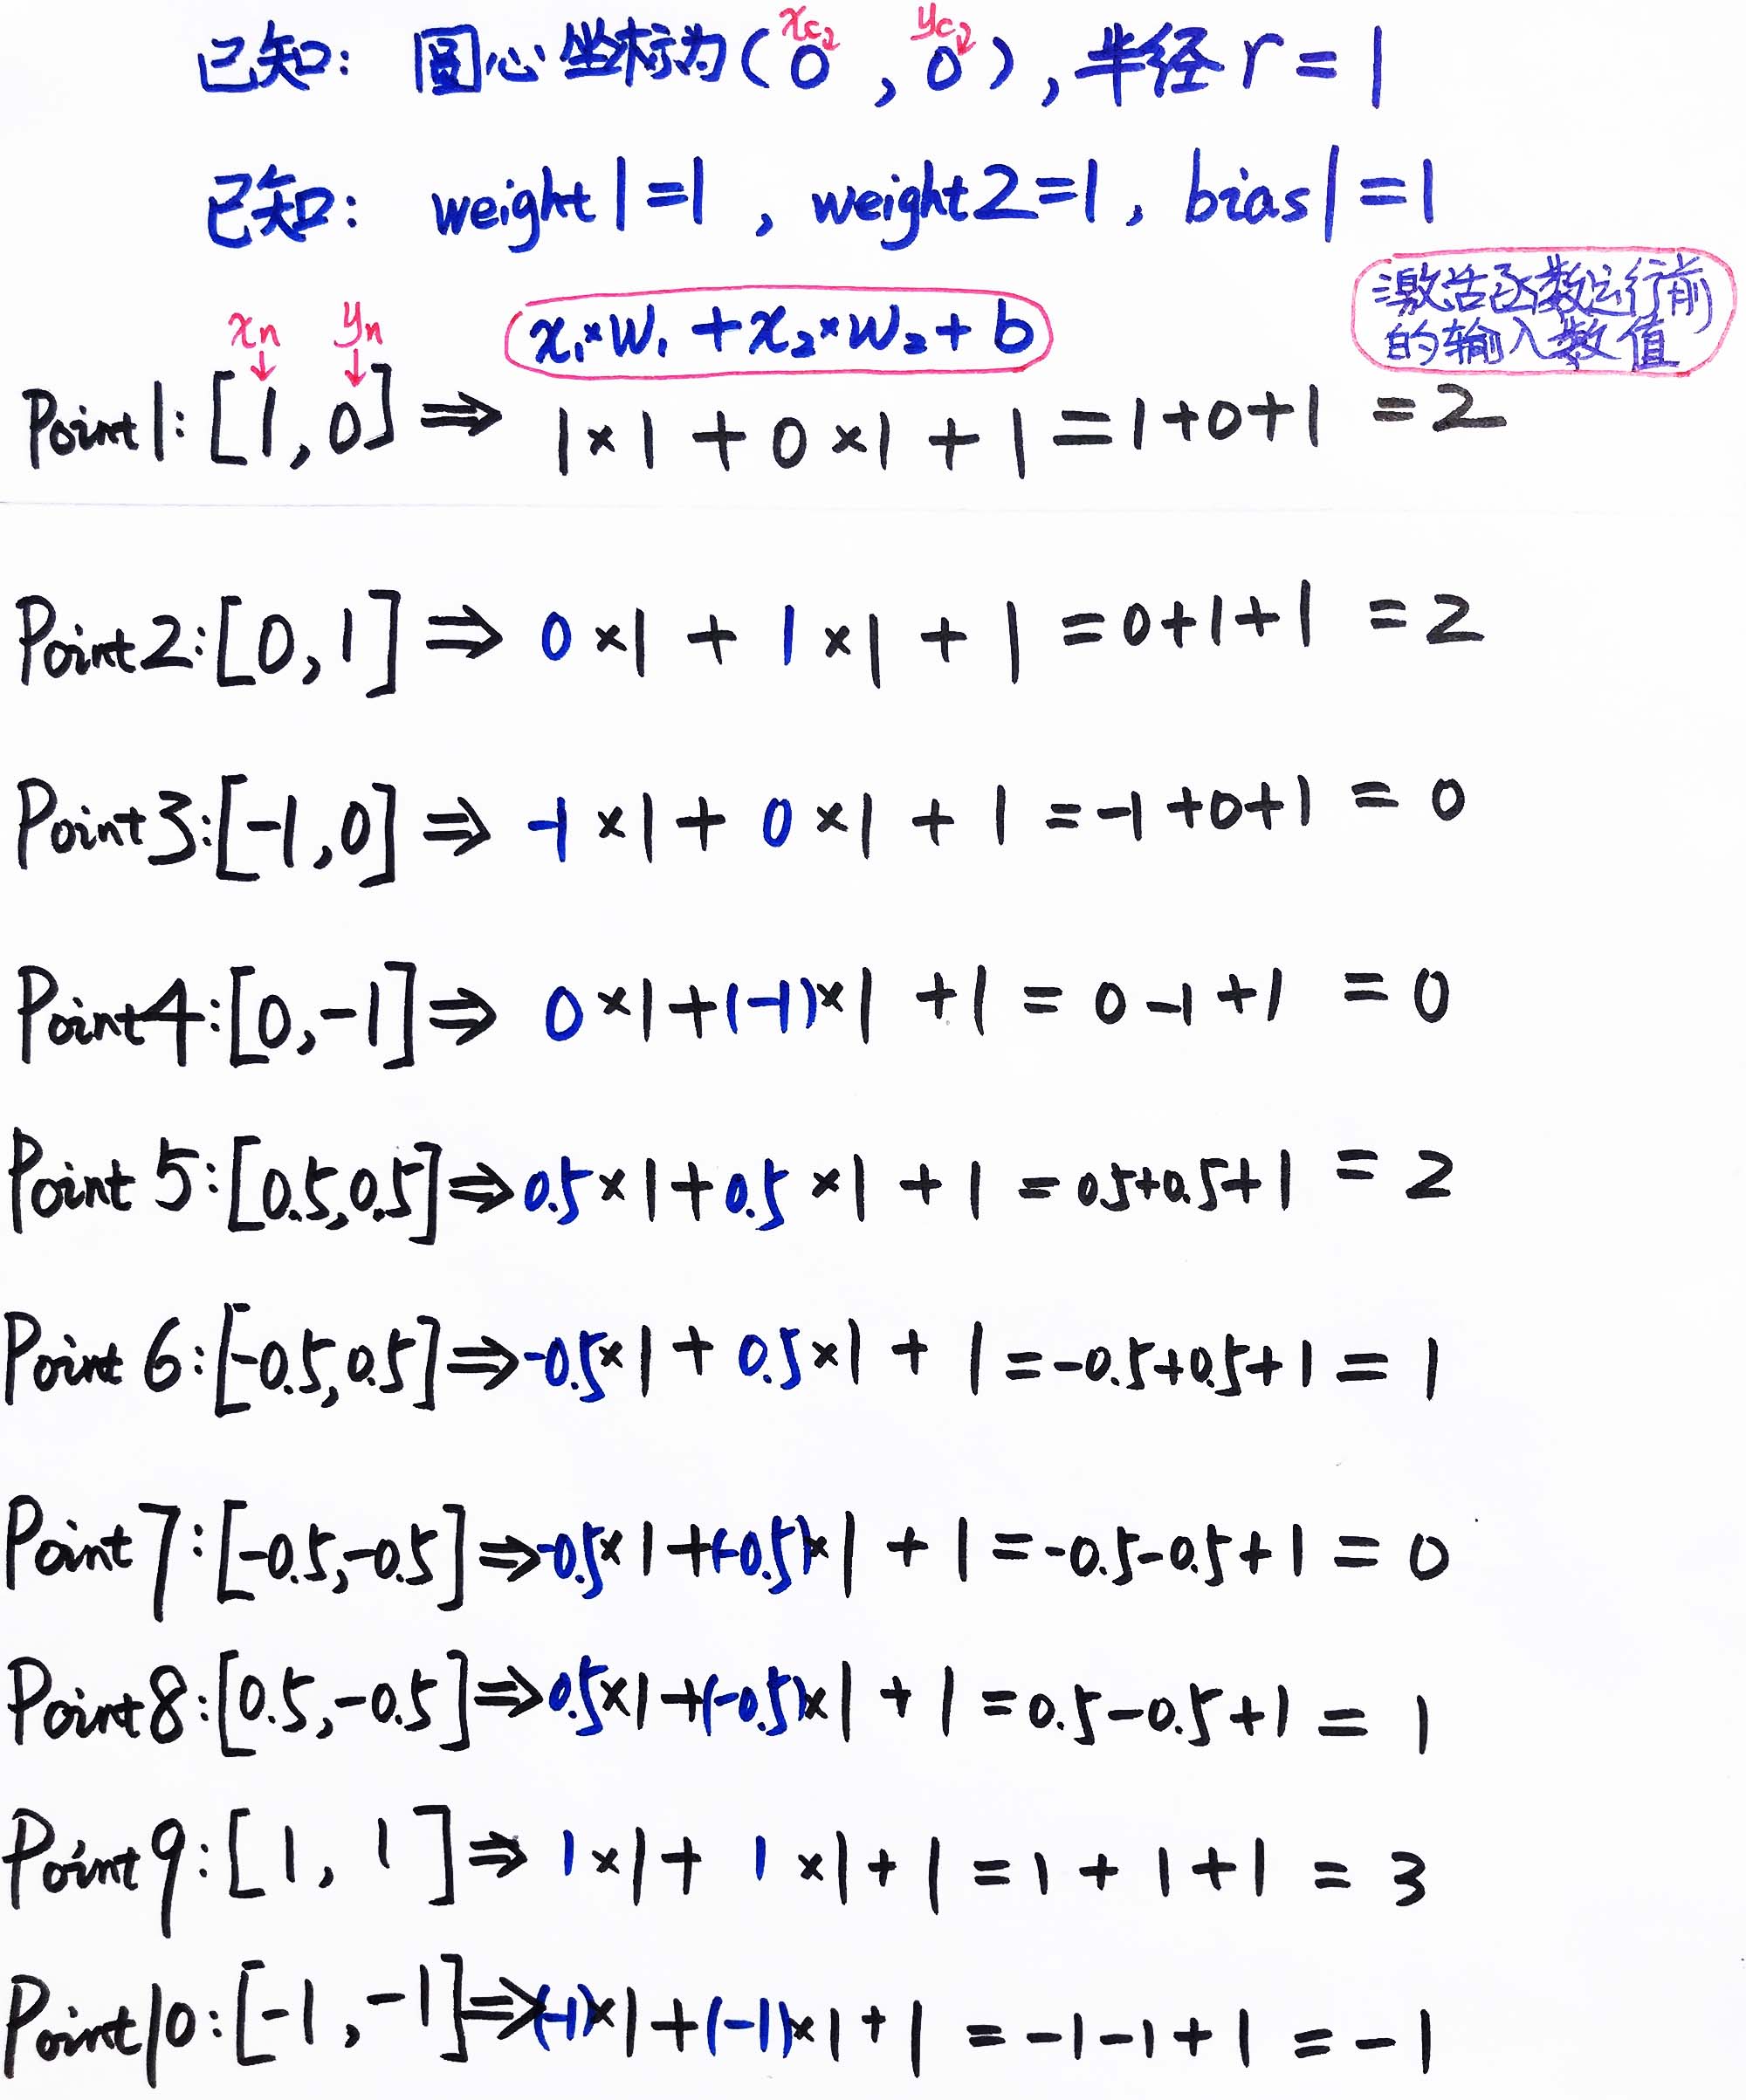 已知: 圆心坐标为(0, 0), 半径 r = 1
xc2 yc2
已知: weight1=1, weight2=1, bias1=1
激活函数运行前
的输入数值
xn yn
x₁×w₁+x₂×w₂+b
Point1: [1,0] ⇒ 1×1+0×1+1=1+0+1=2
Point2:[0,1] ⇒ 0×1+1×1+1=0+1+1=2
Point3:[-1,0] ⇒ -1×1+0×1+1=-1+0+1=0
Point4:[0,-1] ⇒ 0×1+(-1)×1+1=0-1+1=0
Point 5:[0.5,0.5]⇒0.5×1+0.5×1+1=0.5+0.5+1=2
Point 6:[-0.5,0.5]⇒-0.5×1+0.5×1+1=-0.5+0.5+1=1
Point7:[-0.5,-0.5]⇒-0.5×1+(-0.5)×1+1=-0.5-0.5+1=0
Point8:[0.5,-0.5]⇒0.5×1+(-0.5)×1+1=0.5-0.5+1=1
Point9:[1, 1]⇒1×1+1×1+1=1+1+1=3
Point10:[-1, -1]⇒(-1)×1+(-1)×1+1=-1-1+1=-1